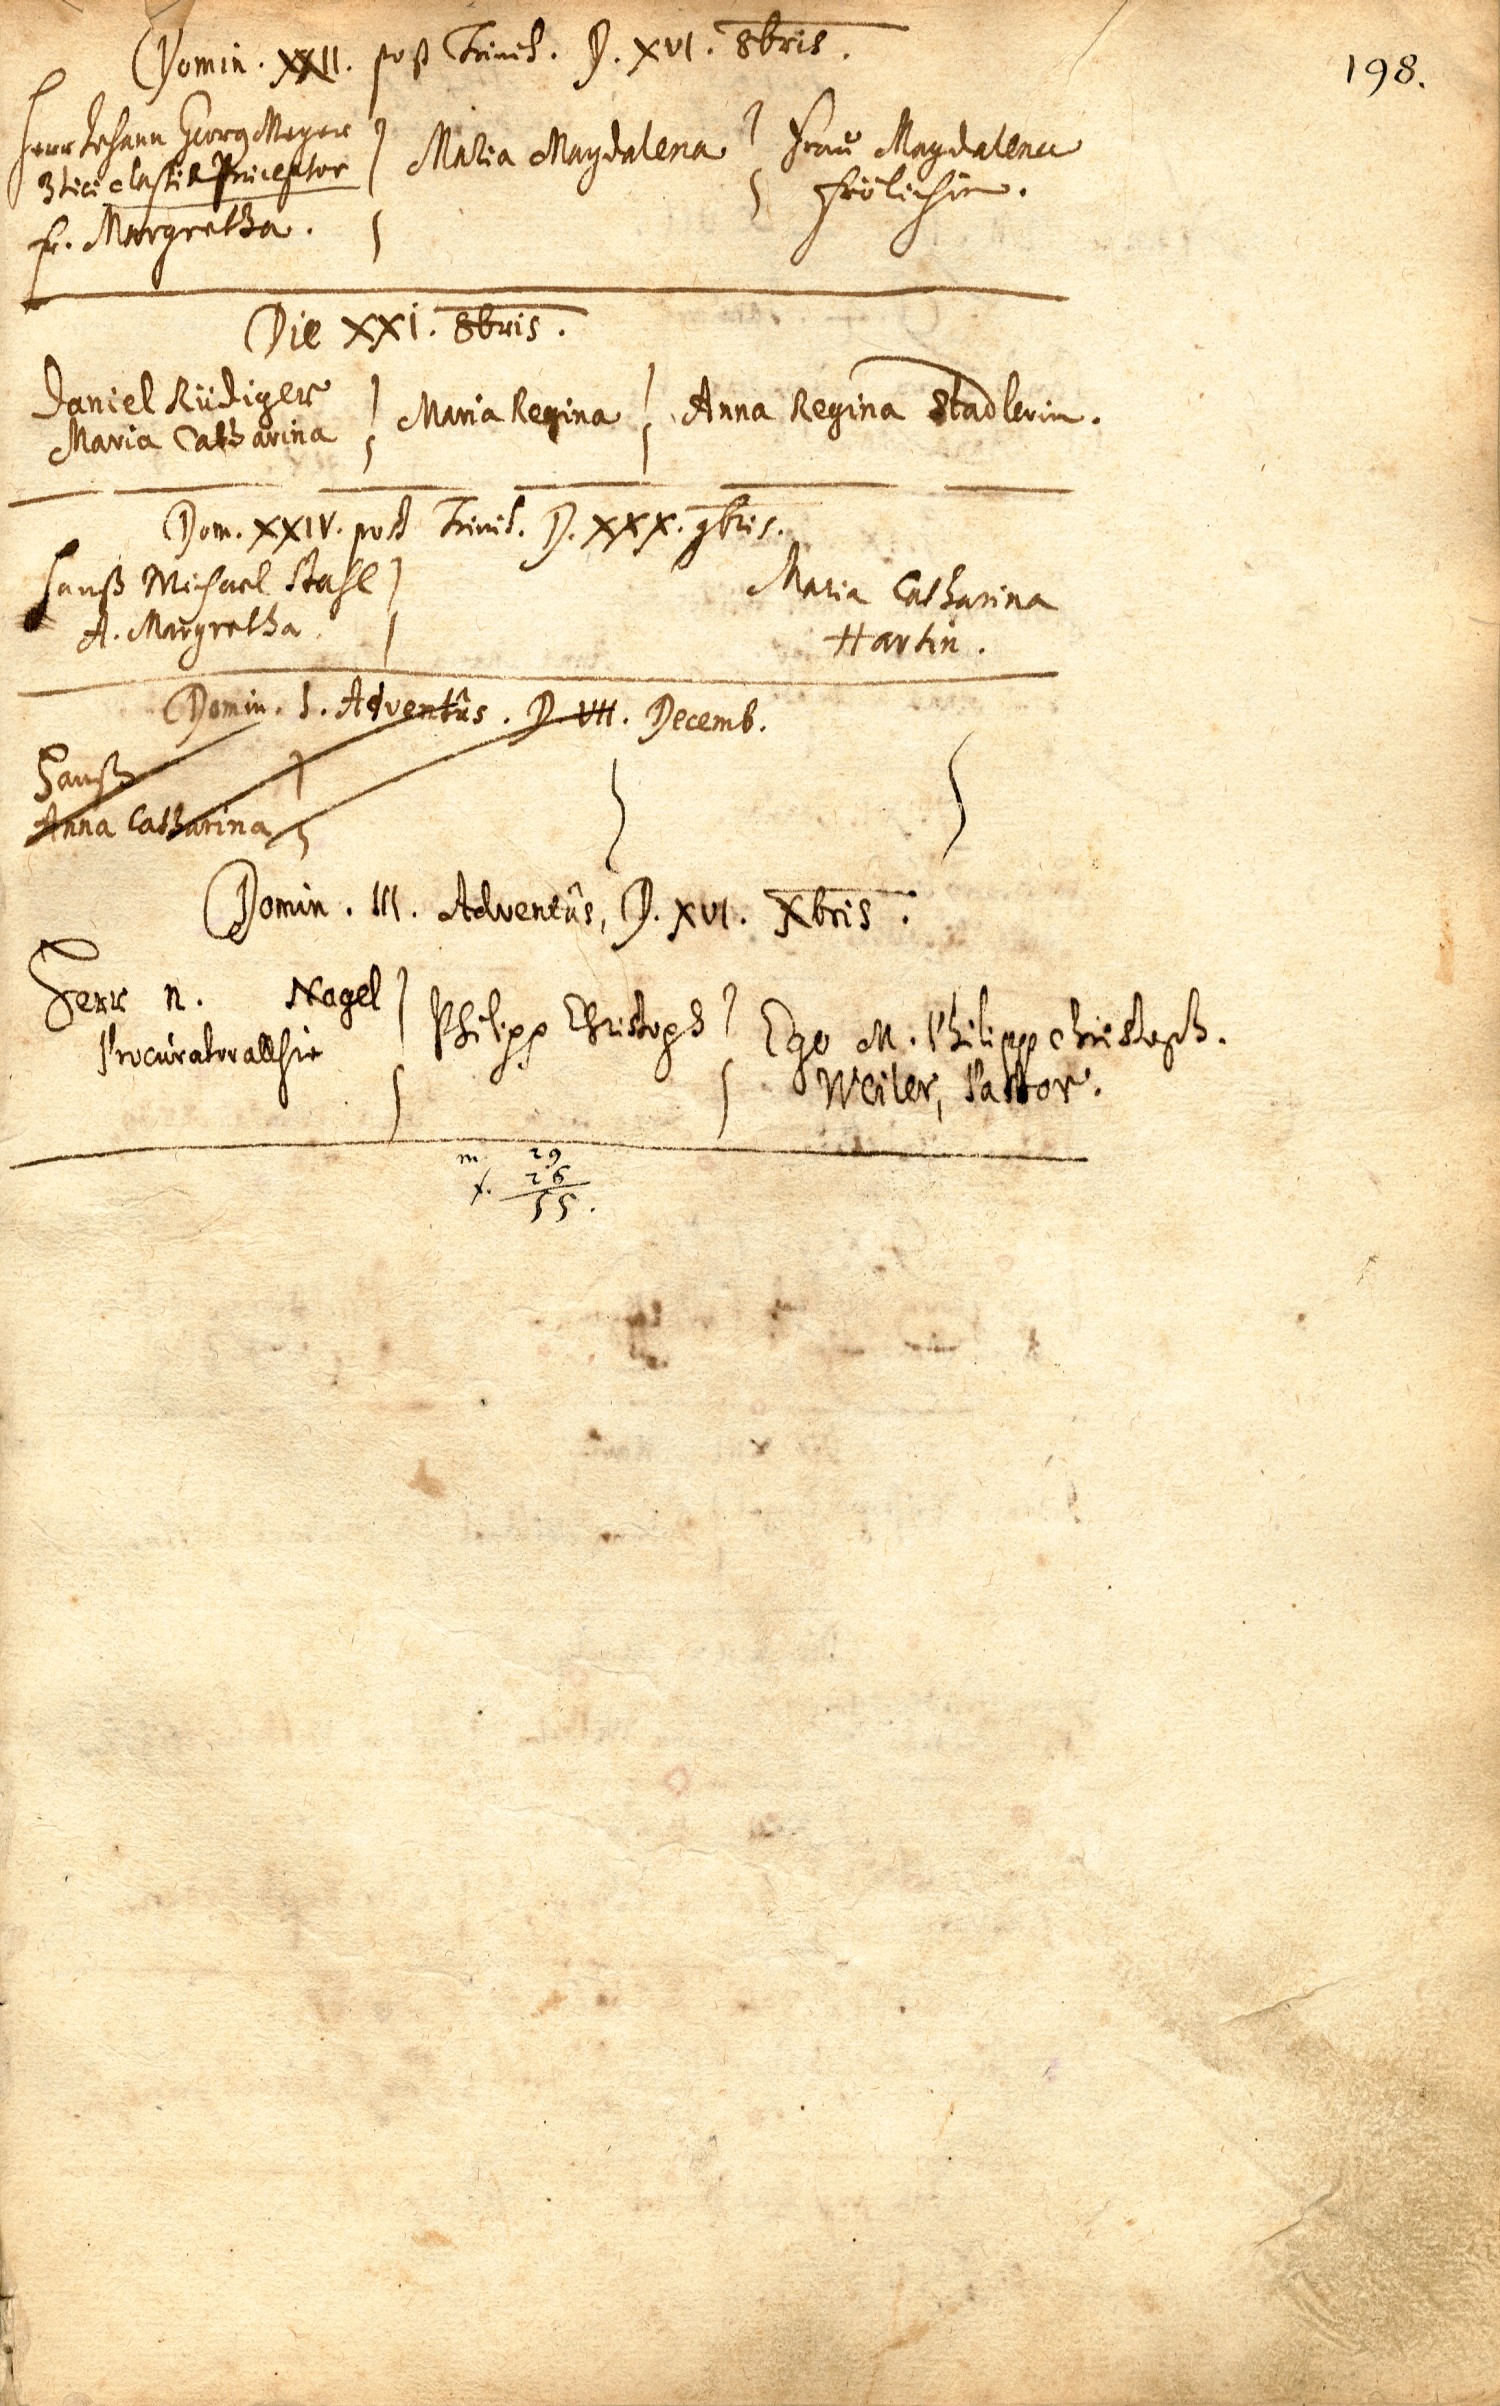 198.
Domin. XXII. post Trinit. D. XVI. 8bris.
Herr Johann Georg Meyer } Maria Magdalena } Frau Magdalena
3tiæ classis Præceptor Frölichin.
fr. Margretha.
Die XXI. 8bris.
Daniel Rüdiger } Maria Regina } Anna Regina Stadlerin.
Maria Catharina
Dom. XXIV. post Trinit. D. XXX. 9bris.
Hanß Michael Stahl } Maria Catharina
A. Margretha Hartin.
Domin. I. Adventûs. D. VII. Decemb.
Hanß
Anna Catharina
Domin. III. Adventûs, D. XVI. Xbris.
Herr N. Nagel } Philipp Christoph } Ego M. Philipp Christoph.
Procurator allhie Weiler, Pastor.
m. 29
f. 26
55.